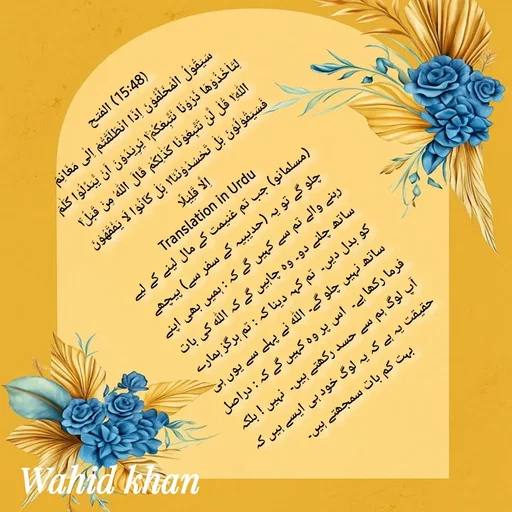 الفتح (15:48)
سَيَقُولُ الْمُخَلَّفُونَ اِذَا انْطَلَقْتُمْ اِلٰى مَغَانِمَ
لِتَاْخُذُوْهَا ذَرُوْنَا نَتَّبِعْكُمْ ۚ يُرِيْدُوْنَ اَنْ يُّبَدِّلُوْا كَلٰمَ
اللّٰهِ ۗ قُلْ لَّنْ تَتَّبِعُوْنَا كَذٰلِكُمْ قَالَ اللّٰهُ مِنْ قَبْلُ ۚ
فَسَيَقُوْلُوْنَ بَلْ تَحْسُدُوْنَنَا ۗ بَلْ كَانُوْا لَا يَفْقَهُوْنَ
اِلَّا قَلِيْلًا
Translation in Urdu
(مسلمانو) جب تم غنیمت کے مال لینے کے لیے
چلو گے تو یہ (حدیبیہ کے سفر سے) پیچھے
رہنے والے تم سے کہیں گے کہ : ہمیں بھی اپنے
ساتھ چلنے دو۔ وہ چاہیں گے کہ اللہ کی بات
کو بدل دیں۔ تم کہہ دینا کہ : تم ہرگز ہمارے
ساتھ نہیں چلو گے۔ اللہ نے پہلے سے یوں ہی
فرما رکھا ہے۔ اس پر وہ کہیں گے کہ : دراصل
آپ لوگ ہم سے حسد رکھتے ہیں۔ نہیں ! بلکہ
حقیقت یہ ہے کہ یہ لوگ خود ہی ایسے ہیں کہ
بہت کم بات سمجھتے ہیں۔
Wahid khan